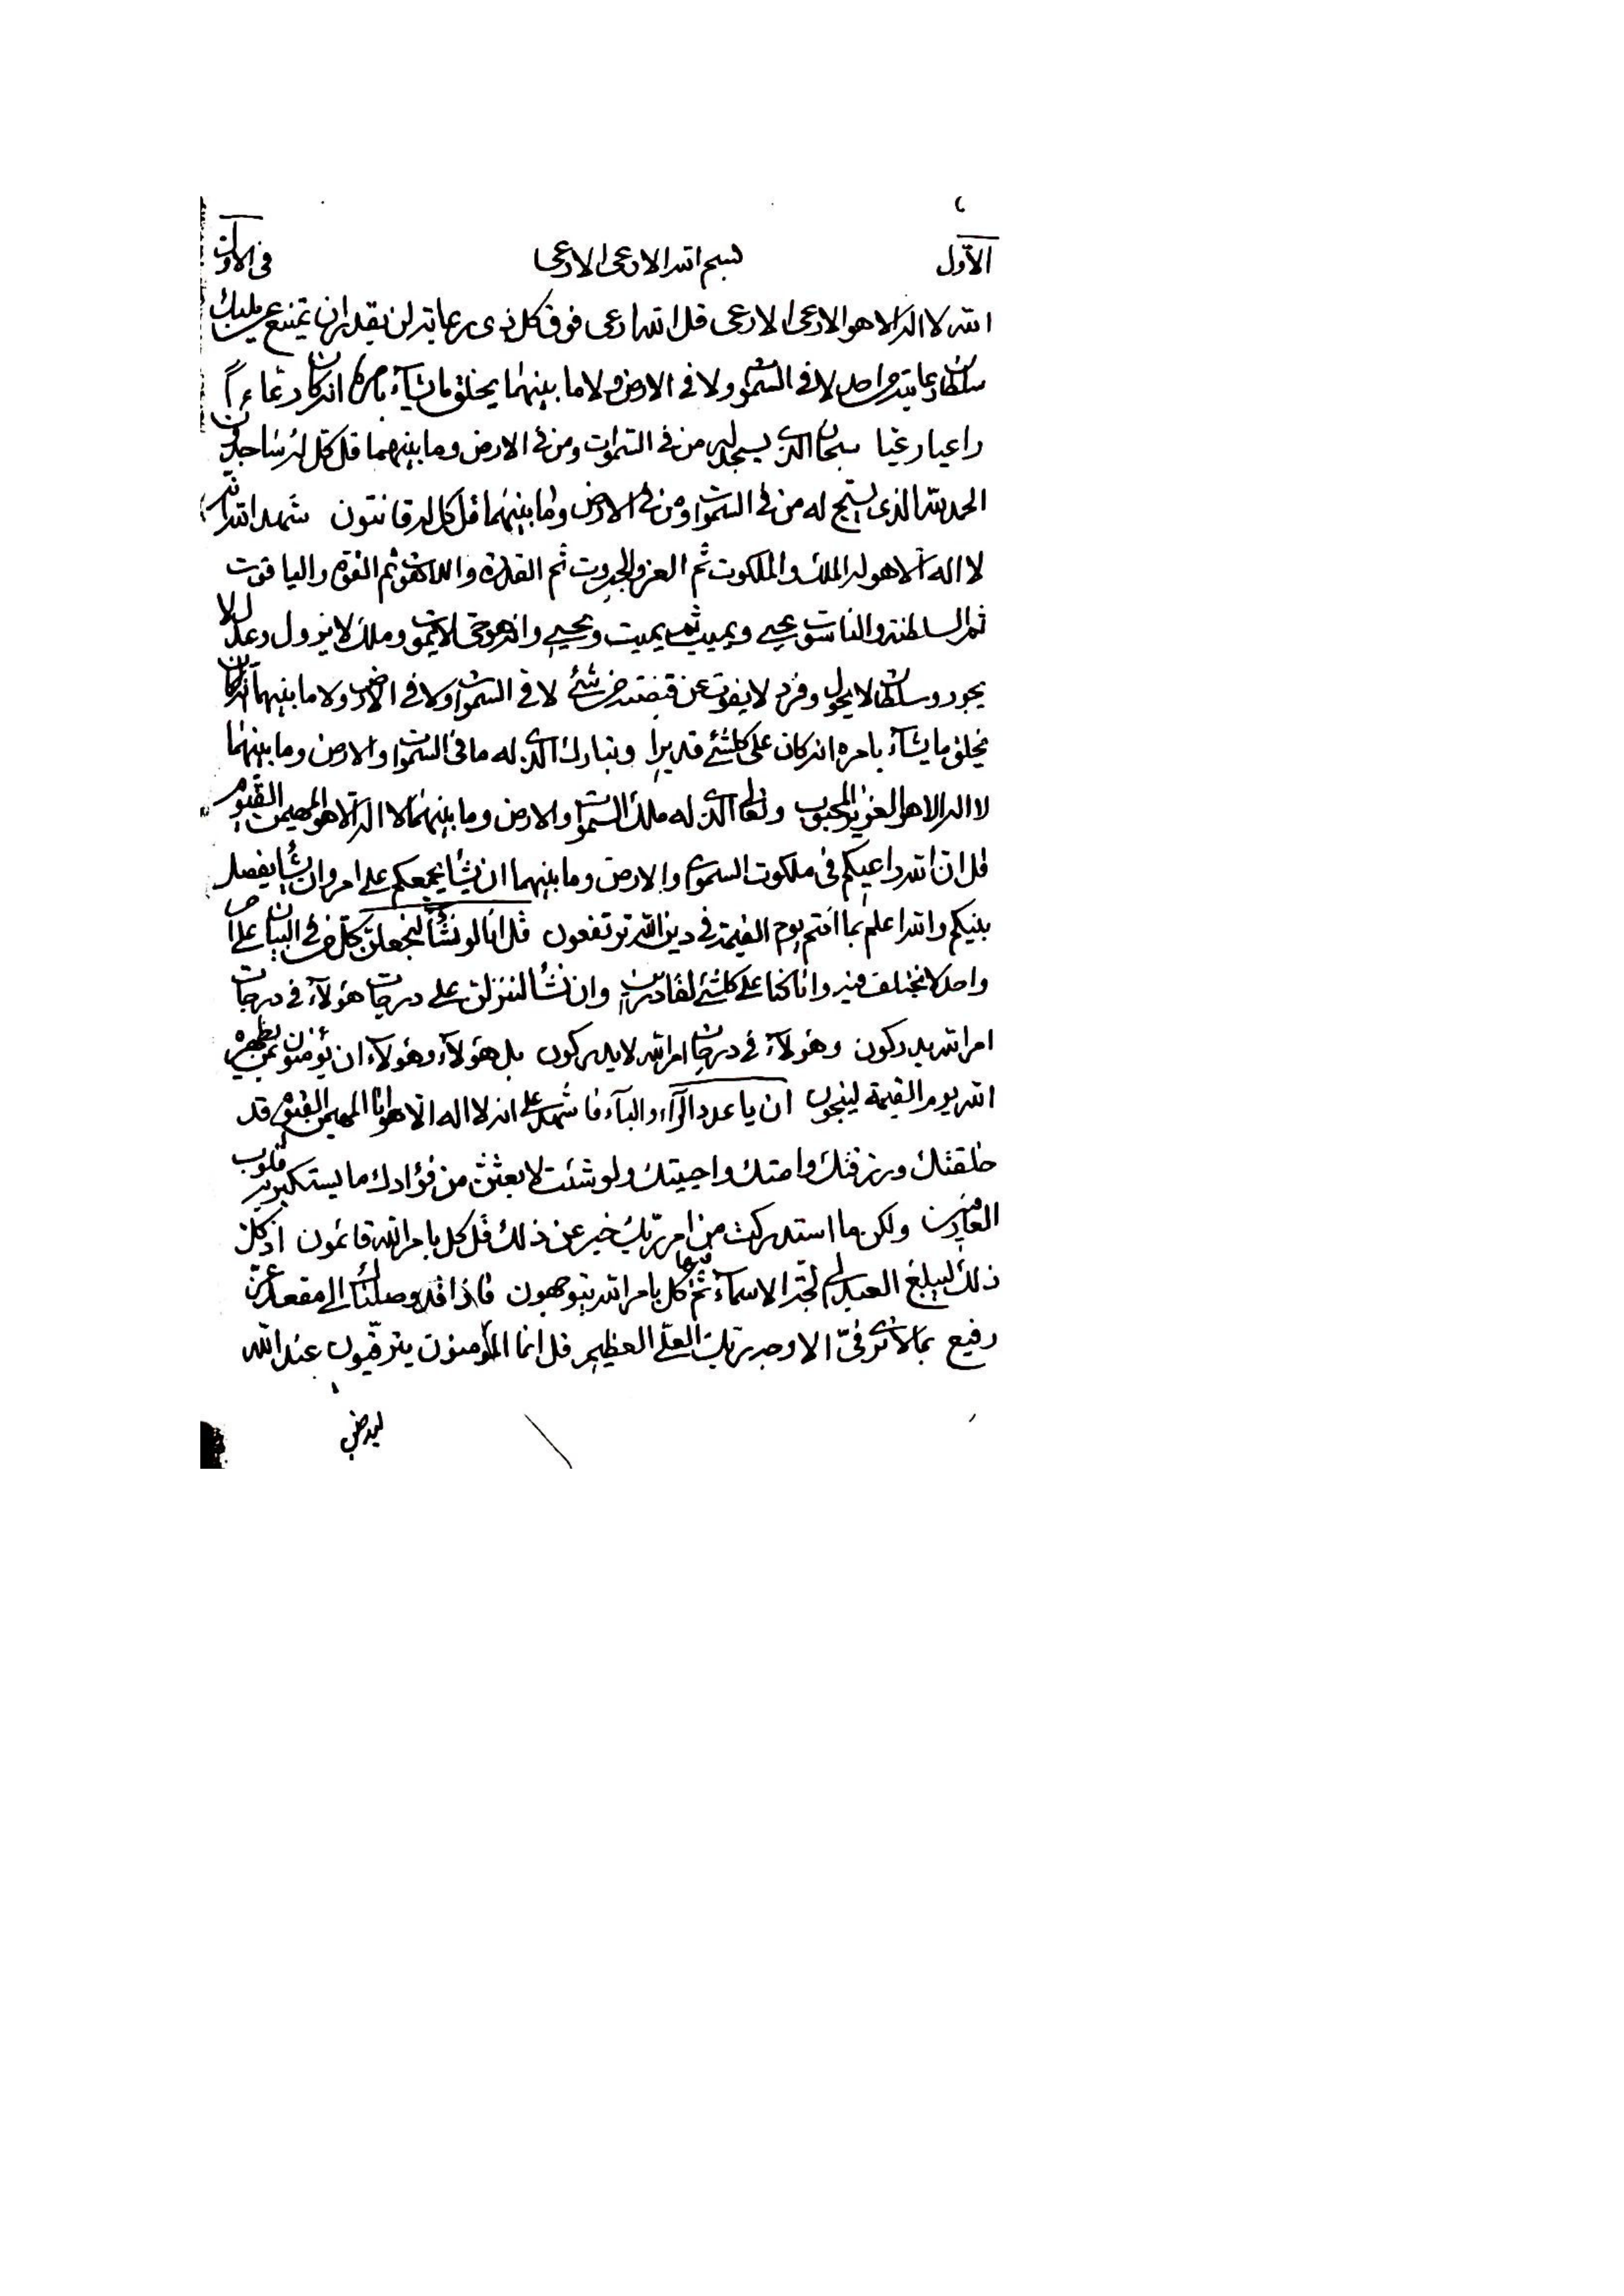 الاوّل بسم الله الارعى الارعى فى الاول
الله لا اله الا هو الارعى الارعى قل الله ارعى فوق كل ذى رعاية لن يقدر ان يمتنع عن مليك
سلطان رعايته من احد لا فى السموات ولا فى الارض ولا ما بينهما يخلق ما يشاء بامره انه كان رعّاء
راعيا رعيا سبحان الذى يسجد له من فى السموات ومن فى الارض وما بينهما قل كل له ساجدون
الحمد لله الذى يسبح له من فى السموات ومن فى الارض وما بينهما قل كل له قانتون شهد الله انه
لا اله الا هو له الملك والملكوت ثم العز والجبروت ثم القدرة واللاهوت ثم القوة والياقوت
ثم السلطنة والناسوت يحيى ويميت ثم يميت ويحيى وانه هو حى لا يموت وملك لا يزول وعدل لا
يجور وسلطان لا يحول وفرد لا يفوت عن قبضته من شئ لا فى السموات ولا فى الارض ولا ما بينهما انه كان
يخلق ما يشاء بامره انه كان على كلشئ قديرا وتبارك الذى له ما فى السموات والارض وما بينهما
لا اله الا هو العزيز المحبوب وتعالى الذى له ملك السموات والارض وما بينهما لا اله الا هو المهيمن القيوم
قل ان الله راعيكم فى ملكوت السموات والارض وما بينهما ان يشأ يجمعكم على امر وان يشأ يفصل
بينكم والله اعلم بما انتم يوم القيمة فى دين الله ترتفعون قل انا لو نشأ لنجعلن كل من فى البيان على امر
واحد لا يختلف فيه وانا كنا على كلشئ لقادرين وان نشأ لننزلن على درجات هؤلاء فى درجات
امر الله يدركون وهؤلاء فى درجات امر الله لا يدركون بل هؤلاء وهؤلاء ان يؤمنون بمن يظهره
الله يوم القيمة لينجون ان يا عدد الراء والباء فاشهد على انه لا اله الا هو انا المهيمن القيوم قد
خلقتك ورزقتك وامتك واحييتك ولو شئت لابعثن من فؤادك ما يستكبر به قلوب
العارفين ولكن ما استدركت من امر ربك خير عن ذلك قل كل بامر الله قائمون اذ كل
ذلك ليبلغ العبد الى لجة الاسماء ثم فيها كل بامر الله يتوجهون فاذا قد وصلناك الى مقعد عز
رفيع بما لا ترى فىّ الا وجه ربك العلى العظيم قل انما المؤمنون يترقيون عند الله